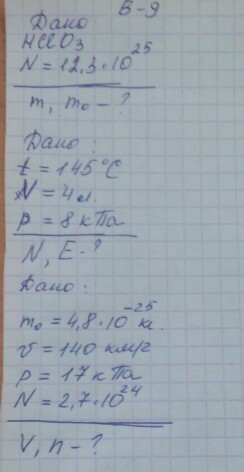 В-9
Дано
HClO₃
N = 12,3·10²⁵
m, m₀ - ?
Дано:
t = 145°C
V = 4 л.
p = 8 кПа
N, E - ?
Дано:
m₀ = 4,8·10⁻²⁵ кг.
v = 140 км/г
p = 17 кПа
N = 2,7·10²⁴
V, n - ?